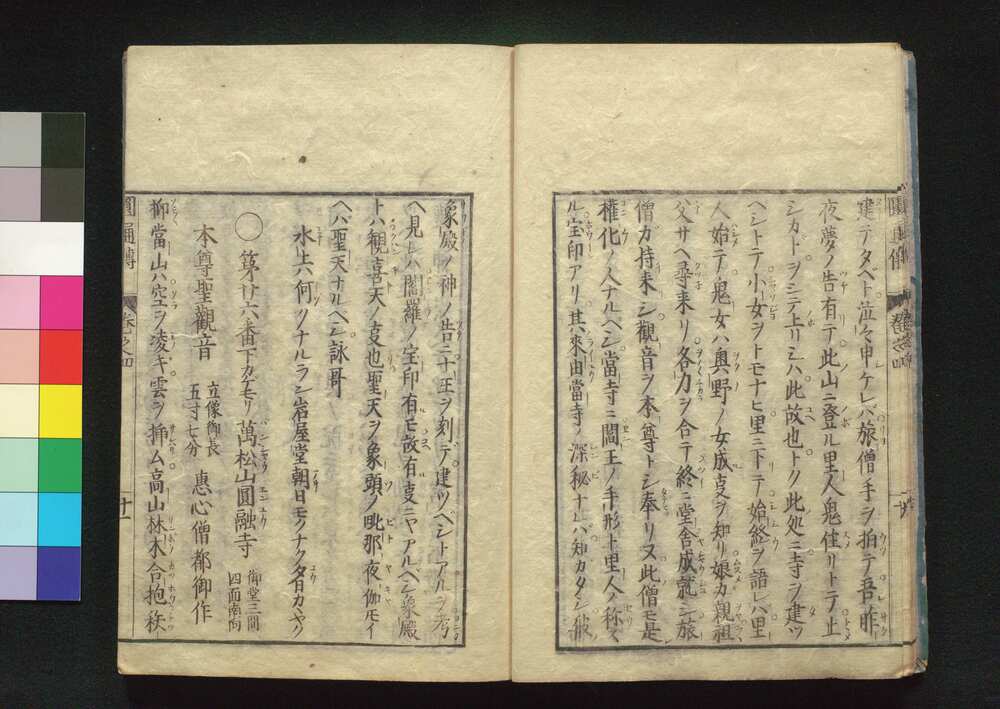 建テタベト泣々申ケレバ旅僧手ヲ拍テ吾昨
夜夢ノ告有テ此山ニ登ル里人鬼住リトテ止
シカドヲシテ上リシハ此故也トク此処ニ寺ヲ建ツ
ヘシトテ小女ヲトモナヒ里ニ下テ始終ヲ語レハ里
人始テ鬼女ハ奥野ノ女成ヿヲ知リ娘カ親祖
父サヘ尋来リ各力ヲ合テ終ニ堂舎成就シ旅
僧カ持来シ観音ヲ本尊トシ奉リヌ此僧モ是
權化ノ人ナルヘシ當寺ニ閻王ノ手形ト里人ノ称ス
ル宝印アリ其來由當寺ノ深秘ナレバ知カタシ彼
象殿ノ神ノ告ニ十王ヲ刻テ建ツベシトアルヲ考
ヘ見レハ閻羅ノ宝印有モ故有ヿニヤアルヘシ象殿
トハ観喜天ノヿ也聖天ヲ象頭ノ毗那夜伽モイ
ヘバ聖天ナルヘシ詠哥
水上ハ何ツナルラシ岩屋堂朝日モクナク夕日カヽヤク
○第廿六番下カケモリ萬松山圓融寺 御堂三間四面南向
本尊聖觀音 立像御長五寸七分 惠心僧都御作
抑當山ハ空ヲ凌キ雲ヲ挿ム高山林木合抱秩
圓通傳 卷之四 十一